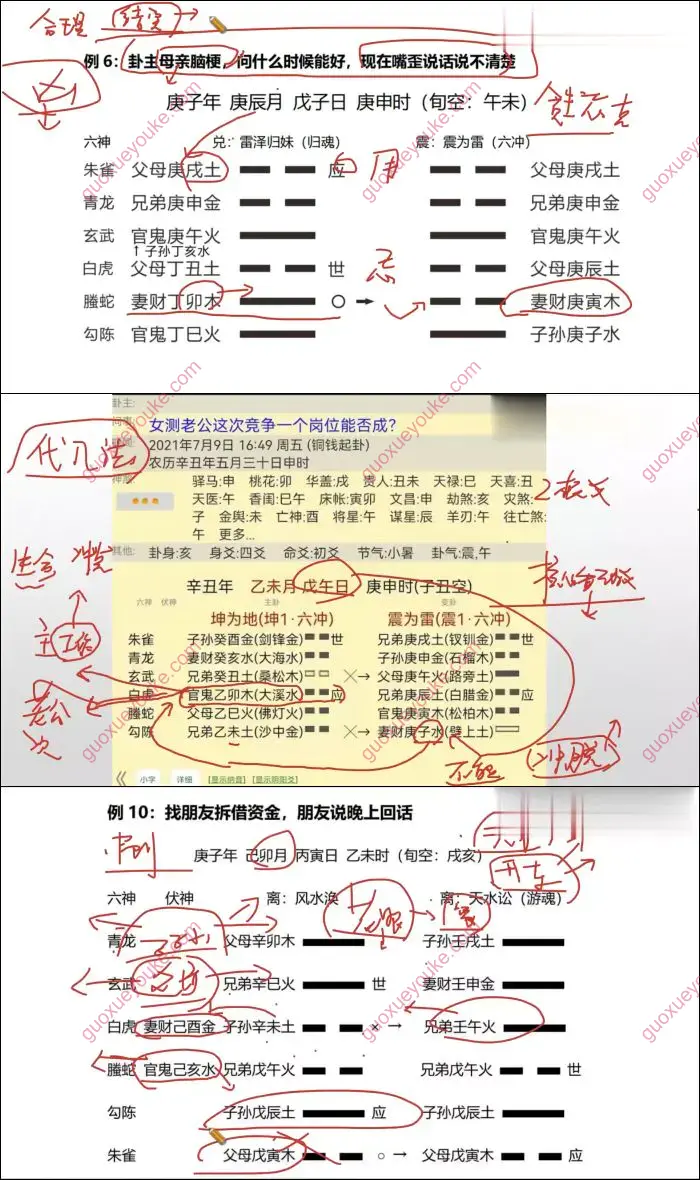 合理
例 6：卦主母亲脑梗，问什么时候能好，现在嘴歪说话说不清楚
凶
庚子年 庚辰月 戊子日 庚申时（旬空：午未）
六神 兑：雷泽归妹（归魂） 震：震为雷（六冲）
朱雀 父母庚戌土 应 用 父母庚戌土
青龙 兄弟庚申金 兄弟庚申金
玄武 官鬼庚午火 官鬼庚午火
↑子孙丁亥水
白虎 父母丁丑土 世 忌 父母庚辰土
螣蛇 妻财丁卯木 ○→ 妻财庚寅木
勾陈 官鬼丁巳火 子孙庚子水
卦主:
问事: 女测老公这次竞争一个岗位能否成?
代入法
2021年7月9日 16:49 周五 (铜钱起卦)
农历辛丑年五月三十日申时
神煞: 驿马:申 桃花:卯 华盖:戌 贵人:丑未 天禄:巳 天喜:丑
天医:午 香闺:巳午 床帐:寅卯 文昌:申 劫煞:亥 灾煞:
子 金舆:未 亡神:酉 将星:午 谋星:辰 羊刃:午 往亡煞:
午 更多...
其他: 卦身:亥 身爻:四爻 命爻:初爻 节气:小暑 卦气:震,午
辛丑年 乙未月 戊午日 庚申时(子丑空)
六神 伏神 主卦 变卦
坤为地(坤1·六冲) 震为雷(震1·六冲)
朱雀 子孙癸酉金(剑锋金) 世 兄弟庚戌土(钗钏金) 世
青龙 妻财癸亥水(大海水) 子孙庚申金(石榴木)
玄武 兄弟癸丑土(桑松木) ×→ 父母庚午火(路旁土)
白虎 官鬼乙卯木(大溪水) 应 兄弟庚辰土(白腊金) 应
螣蛇 父母乙巳火(佛灯火) 官鬼庚寅木(松柏木)
勾陈 兄弟乙未土(沙中金) ×→ 妻财庚子水(壁上土)
老公
不能
《 小字 详细 [显示纳音] [显示阴阳爻]
例 10：找朋友拆借资金，朋友说晚上回话
庚子年 己卯月 丙寅日 乙未时（旬空：戌亥）
开车
六神 伏神 离：风水涣 离：天水讼（游魂）
青龙 父母辛卯木 子孙壬戌土
玄武 兄弟辛巳火 世 妻财壬申金
白虎 妻财己酉金 子孙辛未土 ×→ 兄弟壬午火
螣蛇 官鬼己亥水 兄弟戊午火 兄弟戊午火 世
勾陈 子孙戊辰土 应 子孙戊辰土
朱雀 父母戊寅木 ○→ 父母戊寅木 应
guoxueyouke.com